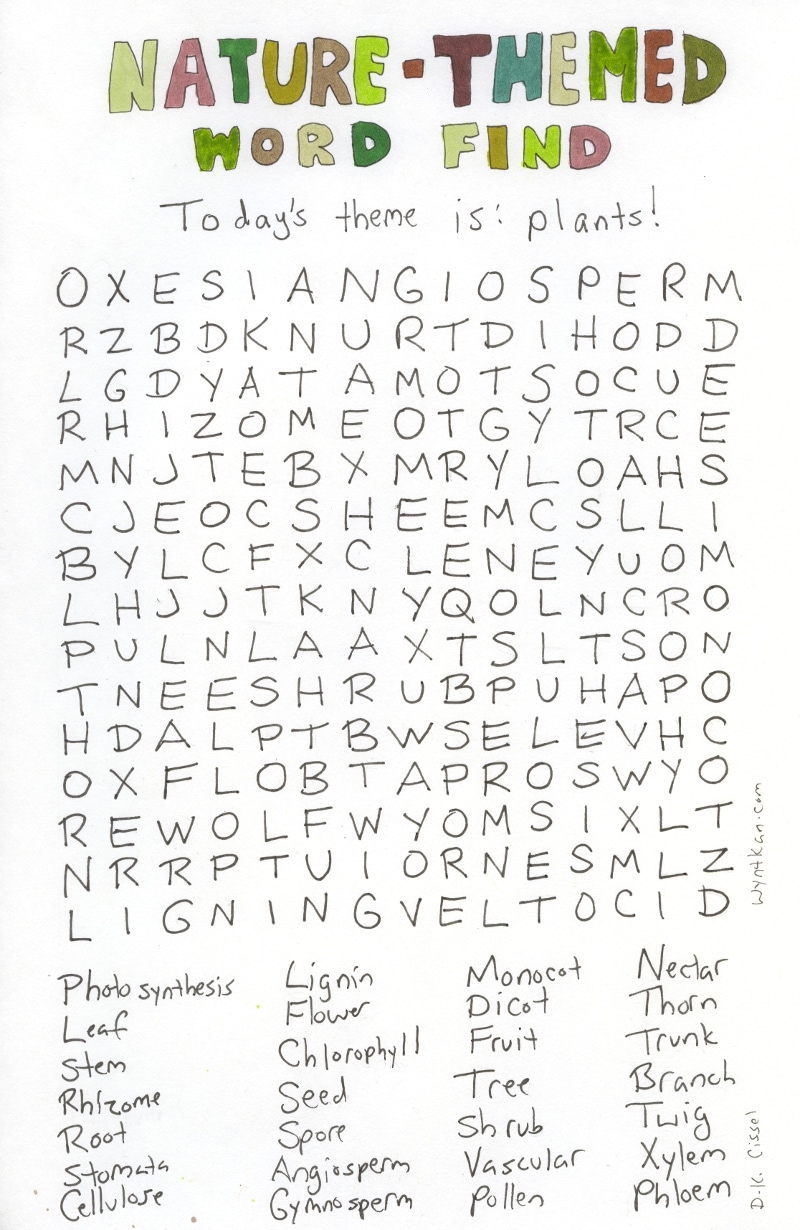 NATURE-THEMED
WORD FIND
Today's theme is: plants!
O X E S I A N G I O S P E R M
R Z B D K N U R T D I H O D D
L G D Y A T A M O T S O C U E
R H I Z O M E O T G Y T R C E
M N J T E B X M R Y L O A H S
C J E O C S H E E M C S L L I
B Y L C F X C L E N E Y U O M
L H J J T K N Y Q O L N C R O
P U L N L A A X T S L T S O N
T N E E S H R U B P U H A P O
H D A L P T B W S E L E V H C
O X F L O B T A P R O S W Y O
R E W O L F W Y O M S I X L T
N R R P T U I O R N E S M L Z
L I G N I N G V E L T O C I D
Photosynthesis
Leaf
Stem
Rhizome
Root
Stomata
Cellulose
Lignin
Flower
Chlorophyll
Seed
Spore
Angiosperm
Gymnosperm
Monocot
Dicot
Fruit
Tree
Shrub
Vascular
Pollen
Nectar
Thorn
Trunk
Branch
Twig
Xylem
Phloem
WyntKan.com
D.K. Cissel